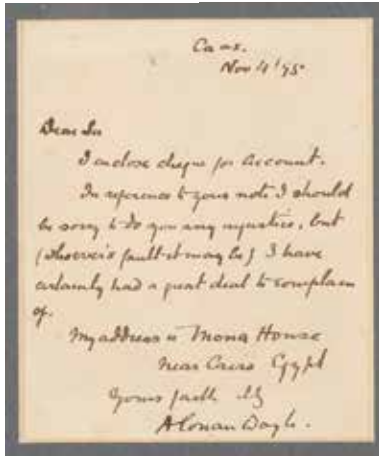 Nov 4 '95
Dear Sir
I enclose cheque for account.
In reference to your note I should
be sorry to do you any injustice, but
(whoever's fault it may be) I have
certainly had a great deal to complain
of.
My address is Mena House
near Cairo Egypt
Yours faithfully
A Conan Doyle.